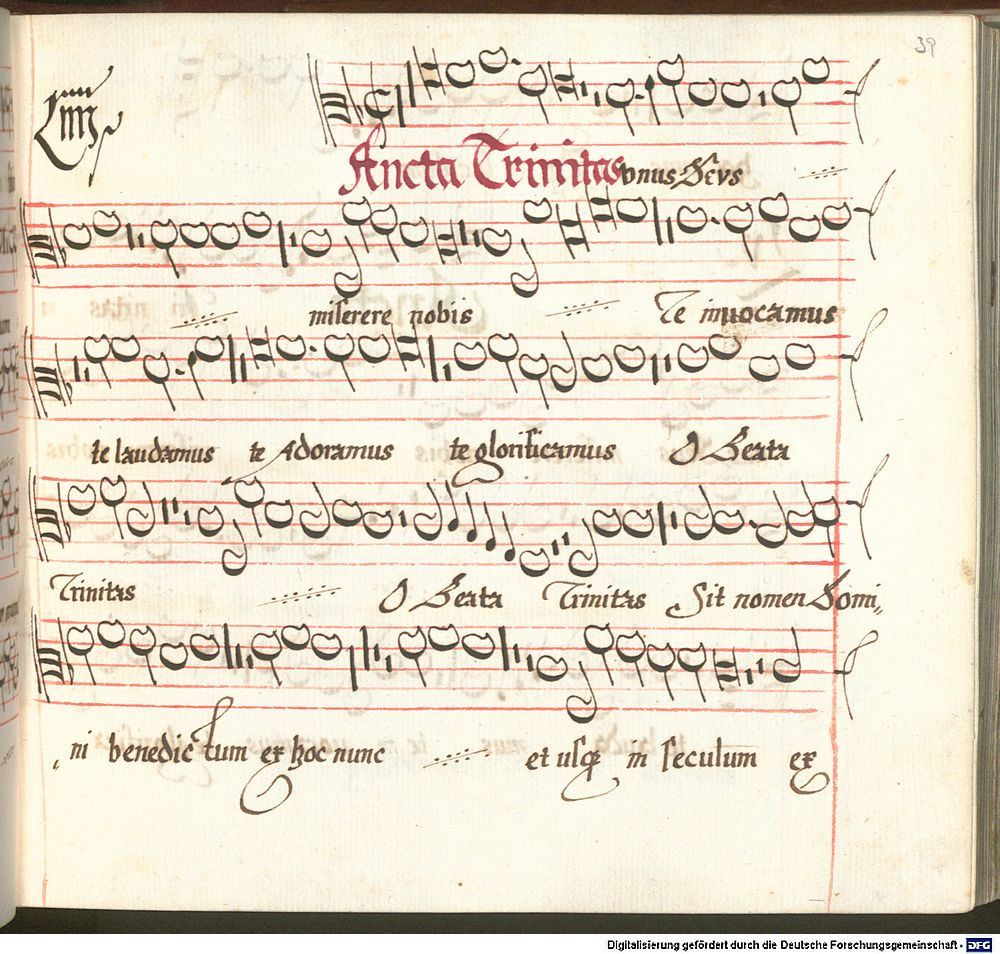 39
Ancta Trinitas vnus Deus
miserere nobis Te inuocamus
te laudamus te Adoramus te glorificamus O Beata
Trinitas O Beata Trinitas Sit nomen Domi,,
ni benedictum ex hoc nunc et usq in seculum ex
Digitalisierung gefördert durch die Deutsche Forschungsgemeinschaft - DFG